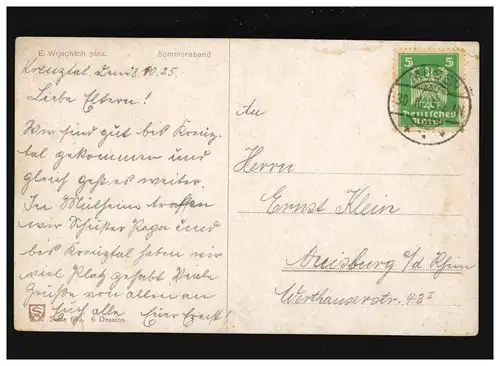 E. Wrjechtch pinx. Sommerabend
Kreuztal, den 28.10.25.
Liebe Eltern!
Wir sind gut bis Kreuz-
tal gekommen und
gleich geht es weiter.
In Mülheim trafen
wir Schüker Papa und
bis Kreuztal haben wir
viel Platz gehabt Viele
Grüße von allen an
Euch alle Euer Ernst!
Serie 6 Dessins.
5 5
Deutsches
Reich
An
Herrn
Ernst Klein
Duisburg a/d Rhein
Werthauserstr. 48 I